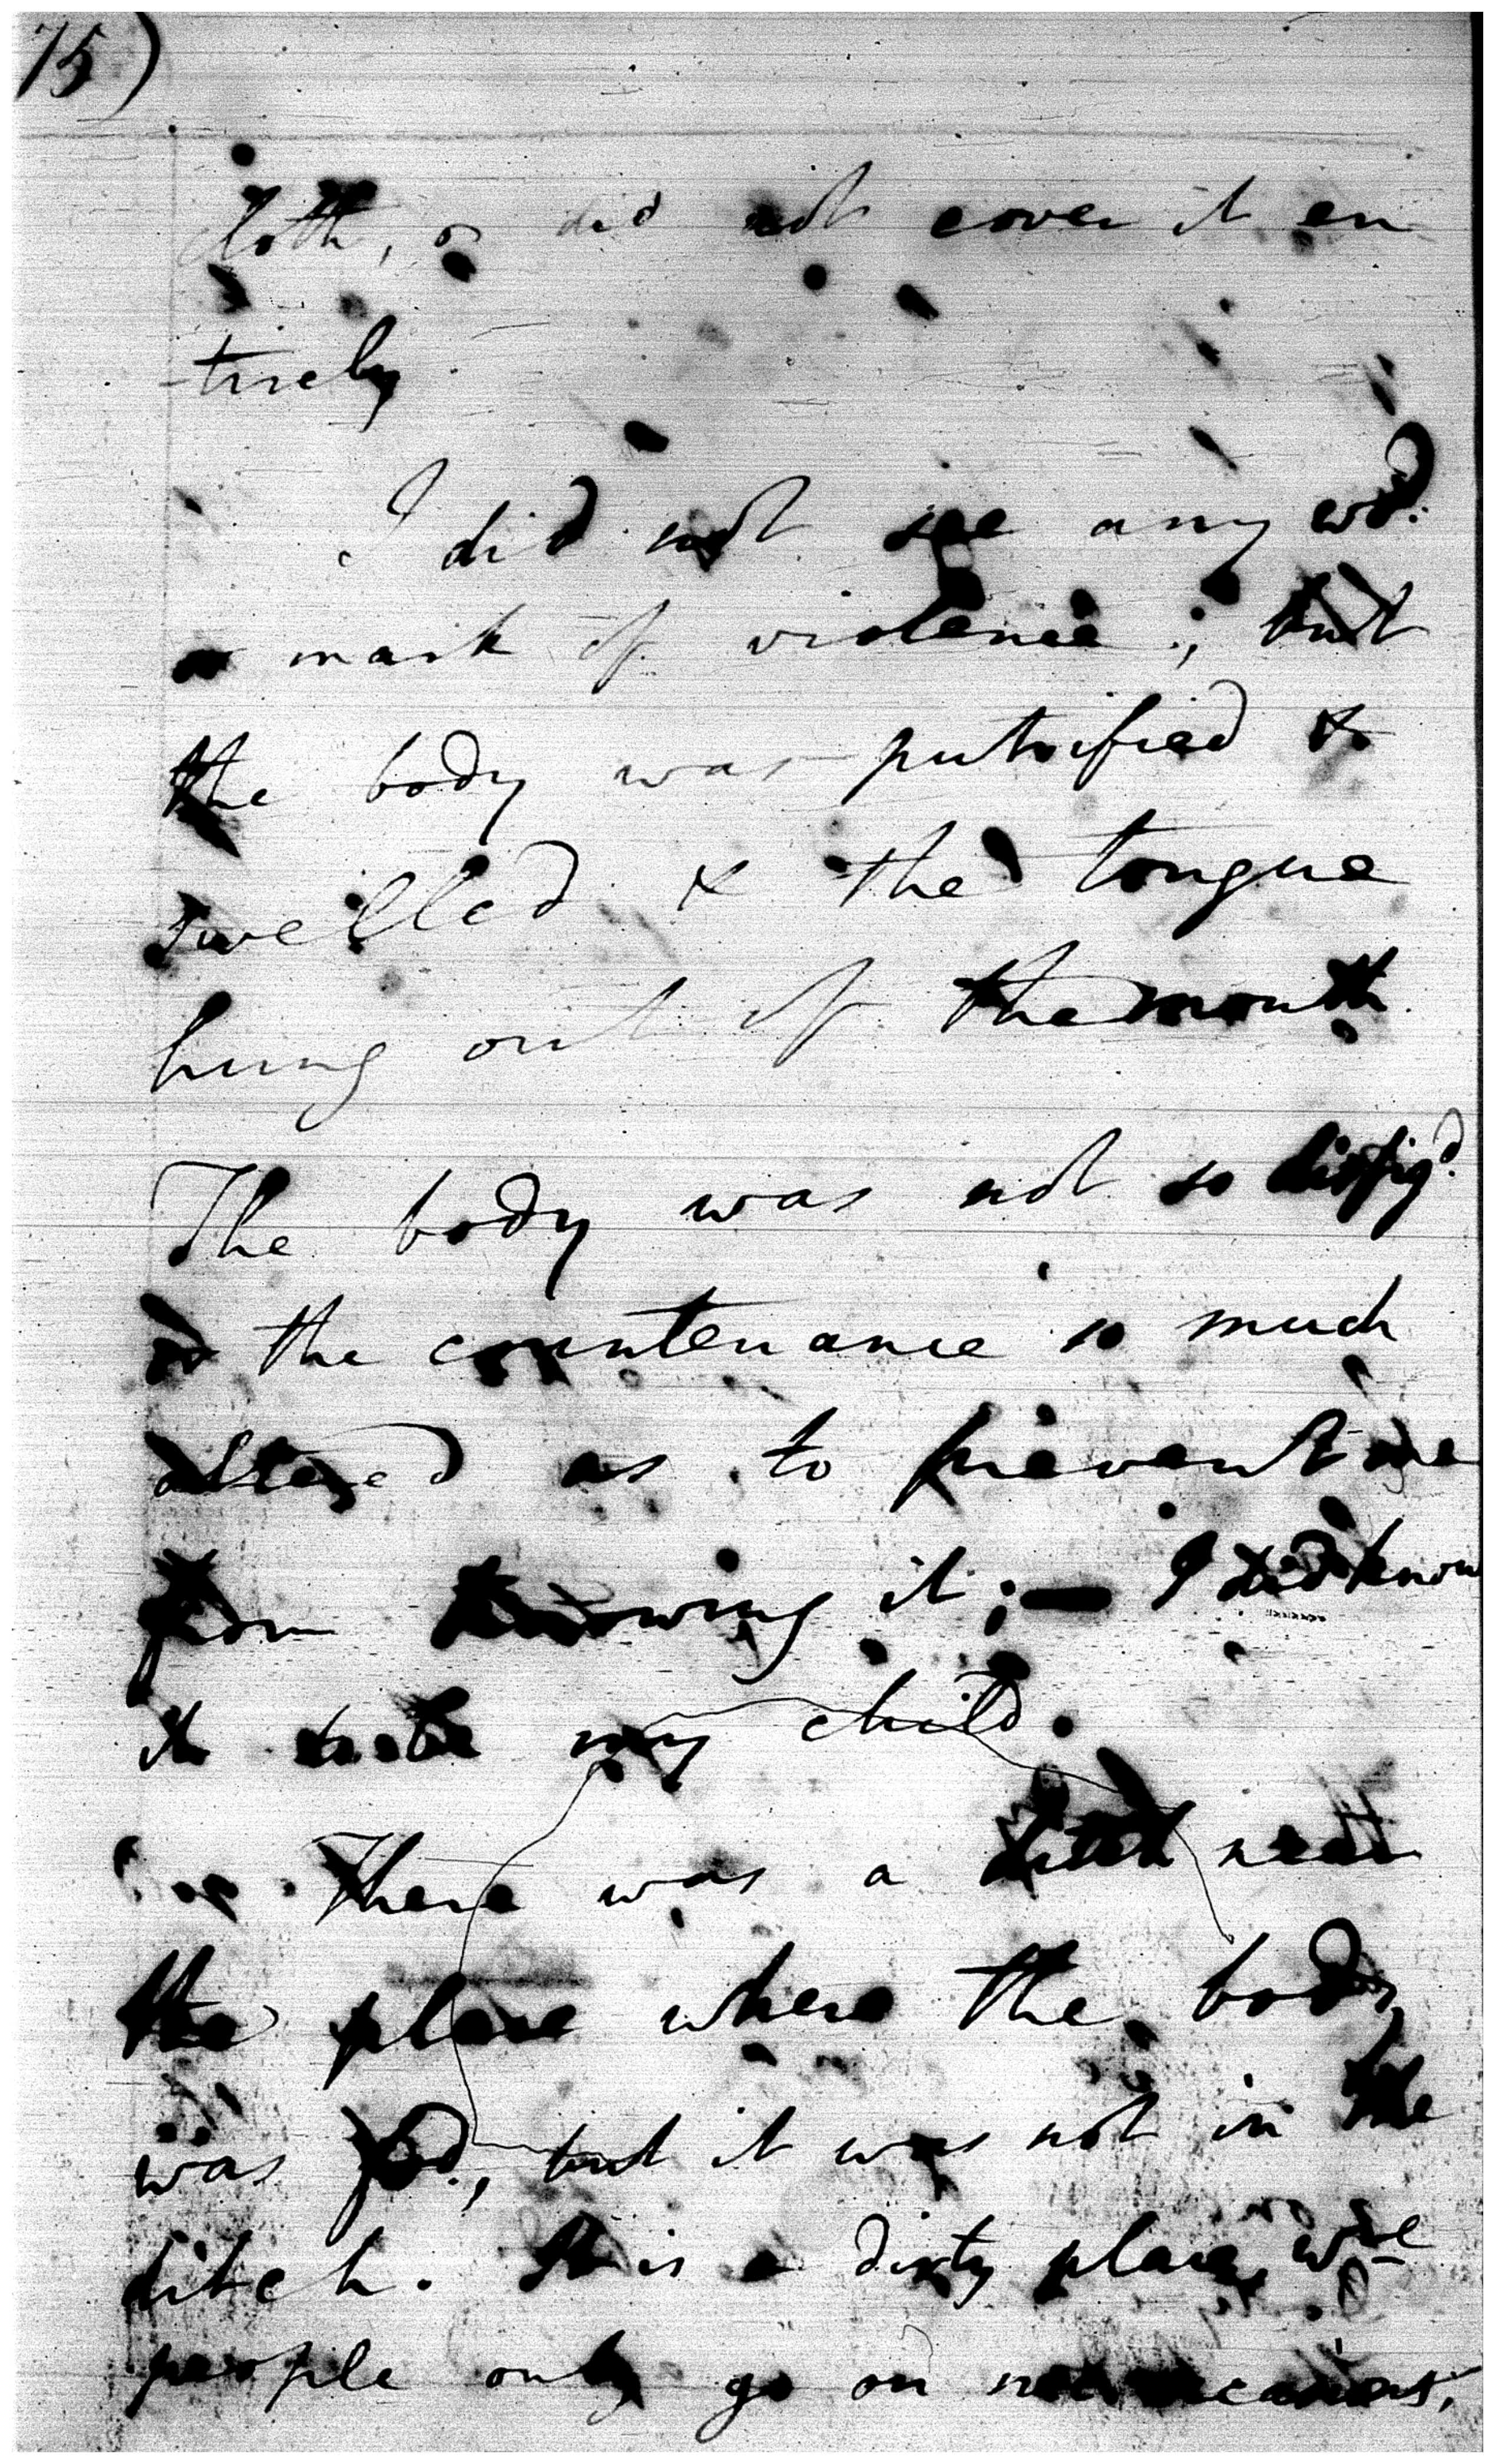 75)
cloth, & did not cover it en
-tirely.
I did not see any wd.
or mark of violence; but
the body was putrified &
swelled & the tongue
hung out of the mouth.
The body was not so disfigd.
or the countenance so much
altered as to prevent me
from knowing it; — I did know
it to be my child.
There was a ditch near
the place where the body
was fd., but it was not in the
ditch. It is a dirty place, wre
people only go on